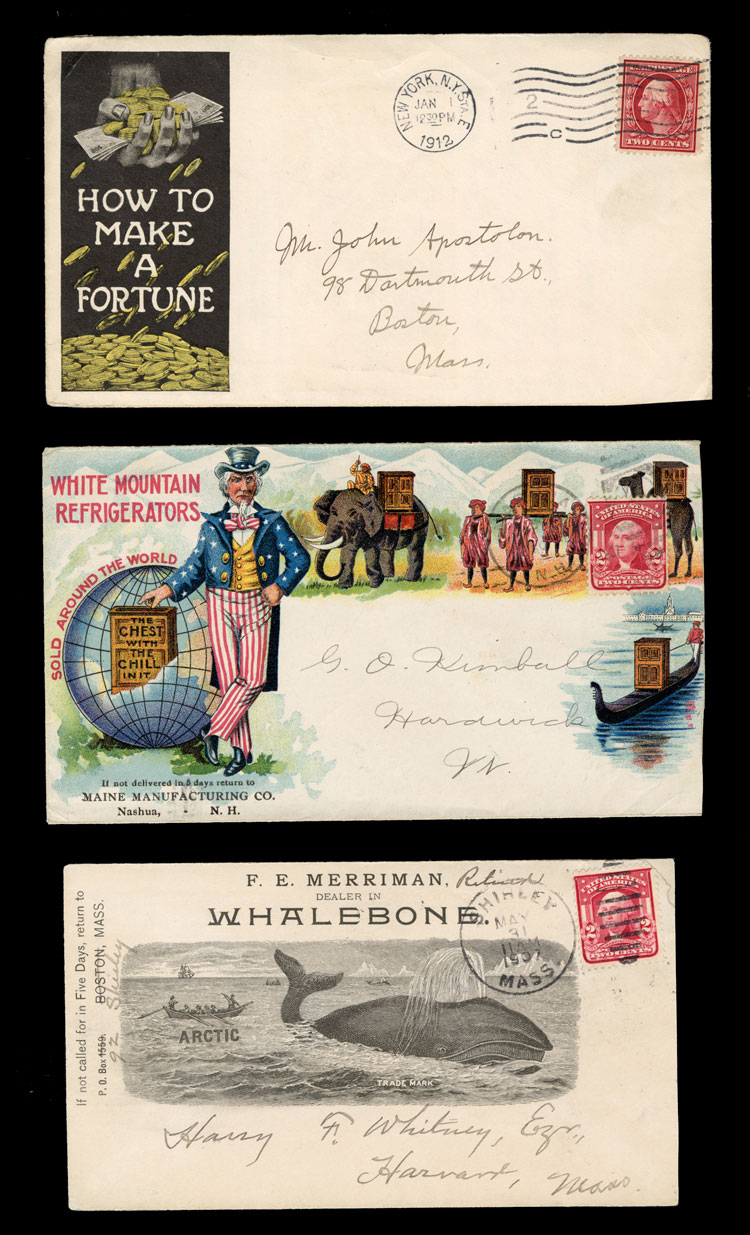 HOW TO
MAKE
A
FORTUNE
NEW YORK, N.Y. STA. E
JAN 1
12 30 PM
1912
2
C
TWO CENTS
Mr. John Apostolon.
98 Dartmouth St.,
Boston,
Mass.
WHITE MOUNTAIN
REFRIGERATORS
SOLD AROUND THE WORLD
THE
CHEST
WITH
THE
CHILL
IN IT.
UNITED STATES
OF AMERICA
2 2
POSTAGE
TWO CENTS
G. O. Kimball
Hardwick
Vt.
If not delivered in 5 days return to
MAINE MANUFACTURING CO.
Nashua, - N. H.
F. E. MERRIMAN, Retired
DEALER IN
WHALEBONE.
SHIRLEY
MAY
31
11AM
1907
MASS.
UNITED STATES
OF AMERICA
2 2
TWO CENTS
If not called for in Five Days, return to
P. O. Box 1559, BOSTON, MASS.
92 Shirley
ARCTIC
TRADE MARK
Harry F. Whitney, Esq.,
Harvard, Mass.